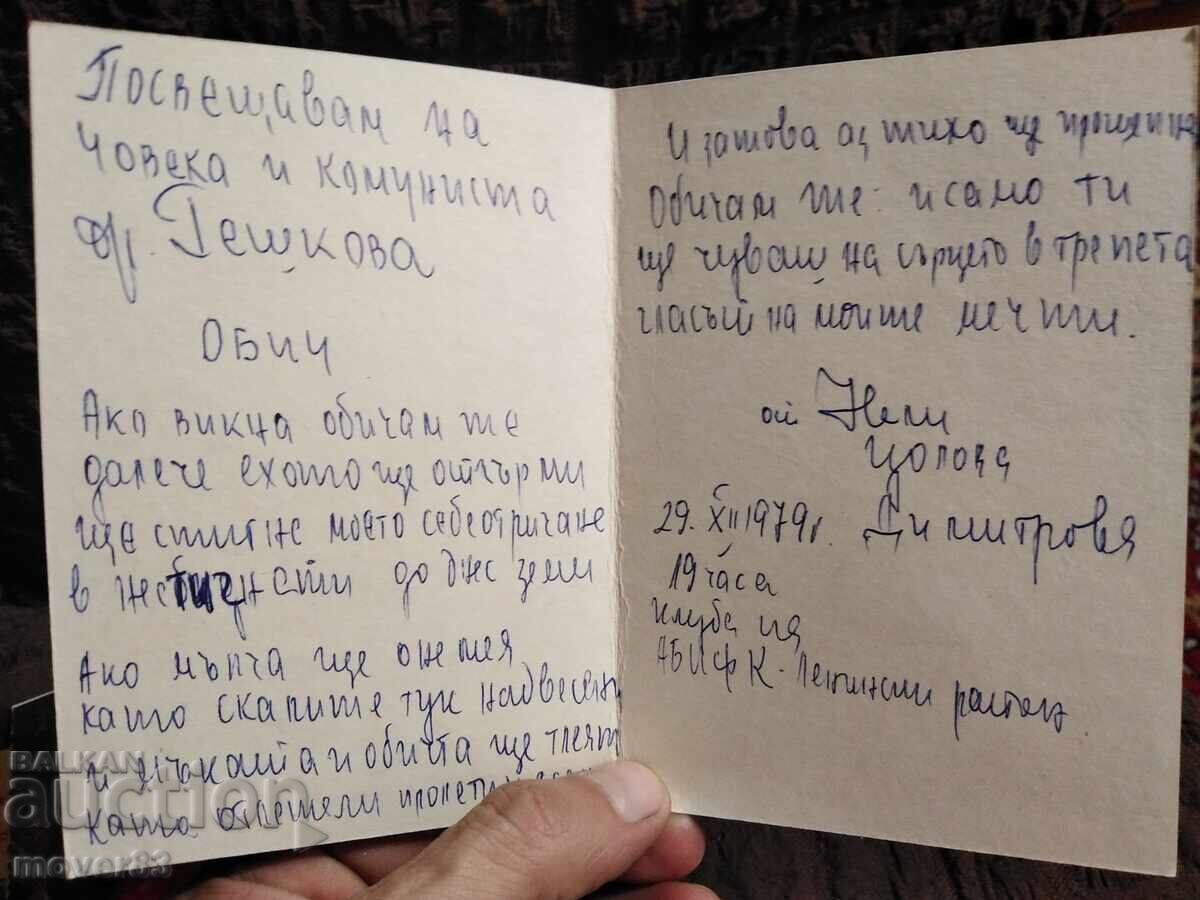 Посвещавам на
човека и комуниста
др. Гешкова
ОБИЧ
Ако викна обичам те
далече ехото ще отгърми
ще стигне моето себеотричане
в до днес земи
Ако мълча ще онемея
като скалите тук надвесени
и мъката и обичта ще тлеят
като отлетели пролети и
И затова аз тихо ще прошепна
Обичам те: и само ти
ще чуваш на сърцето в трепета
гласът на моите мечти.
от Нели
Цолова
29. XII 1979 г. Димитрова
19 часа
клуба на
АБИФК - Ленински район
BALKAN
auction
mover83